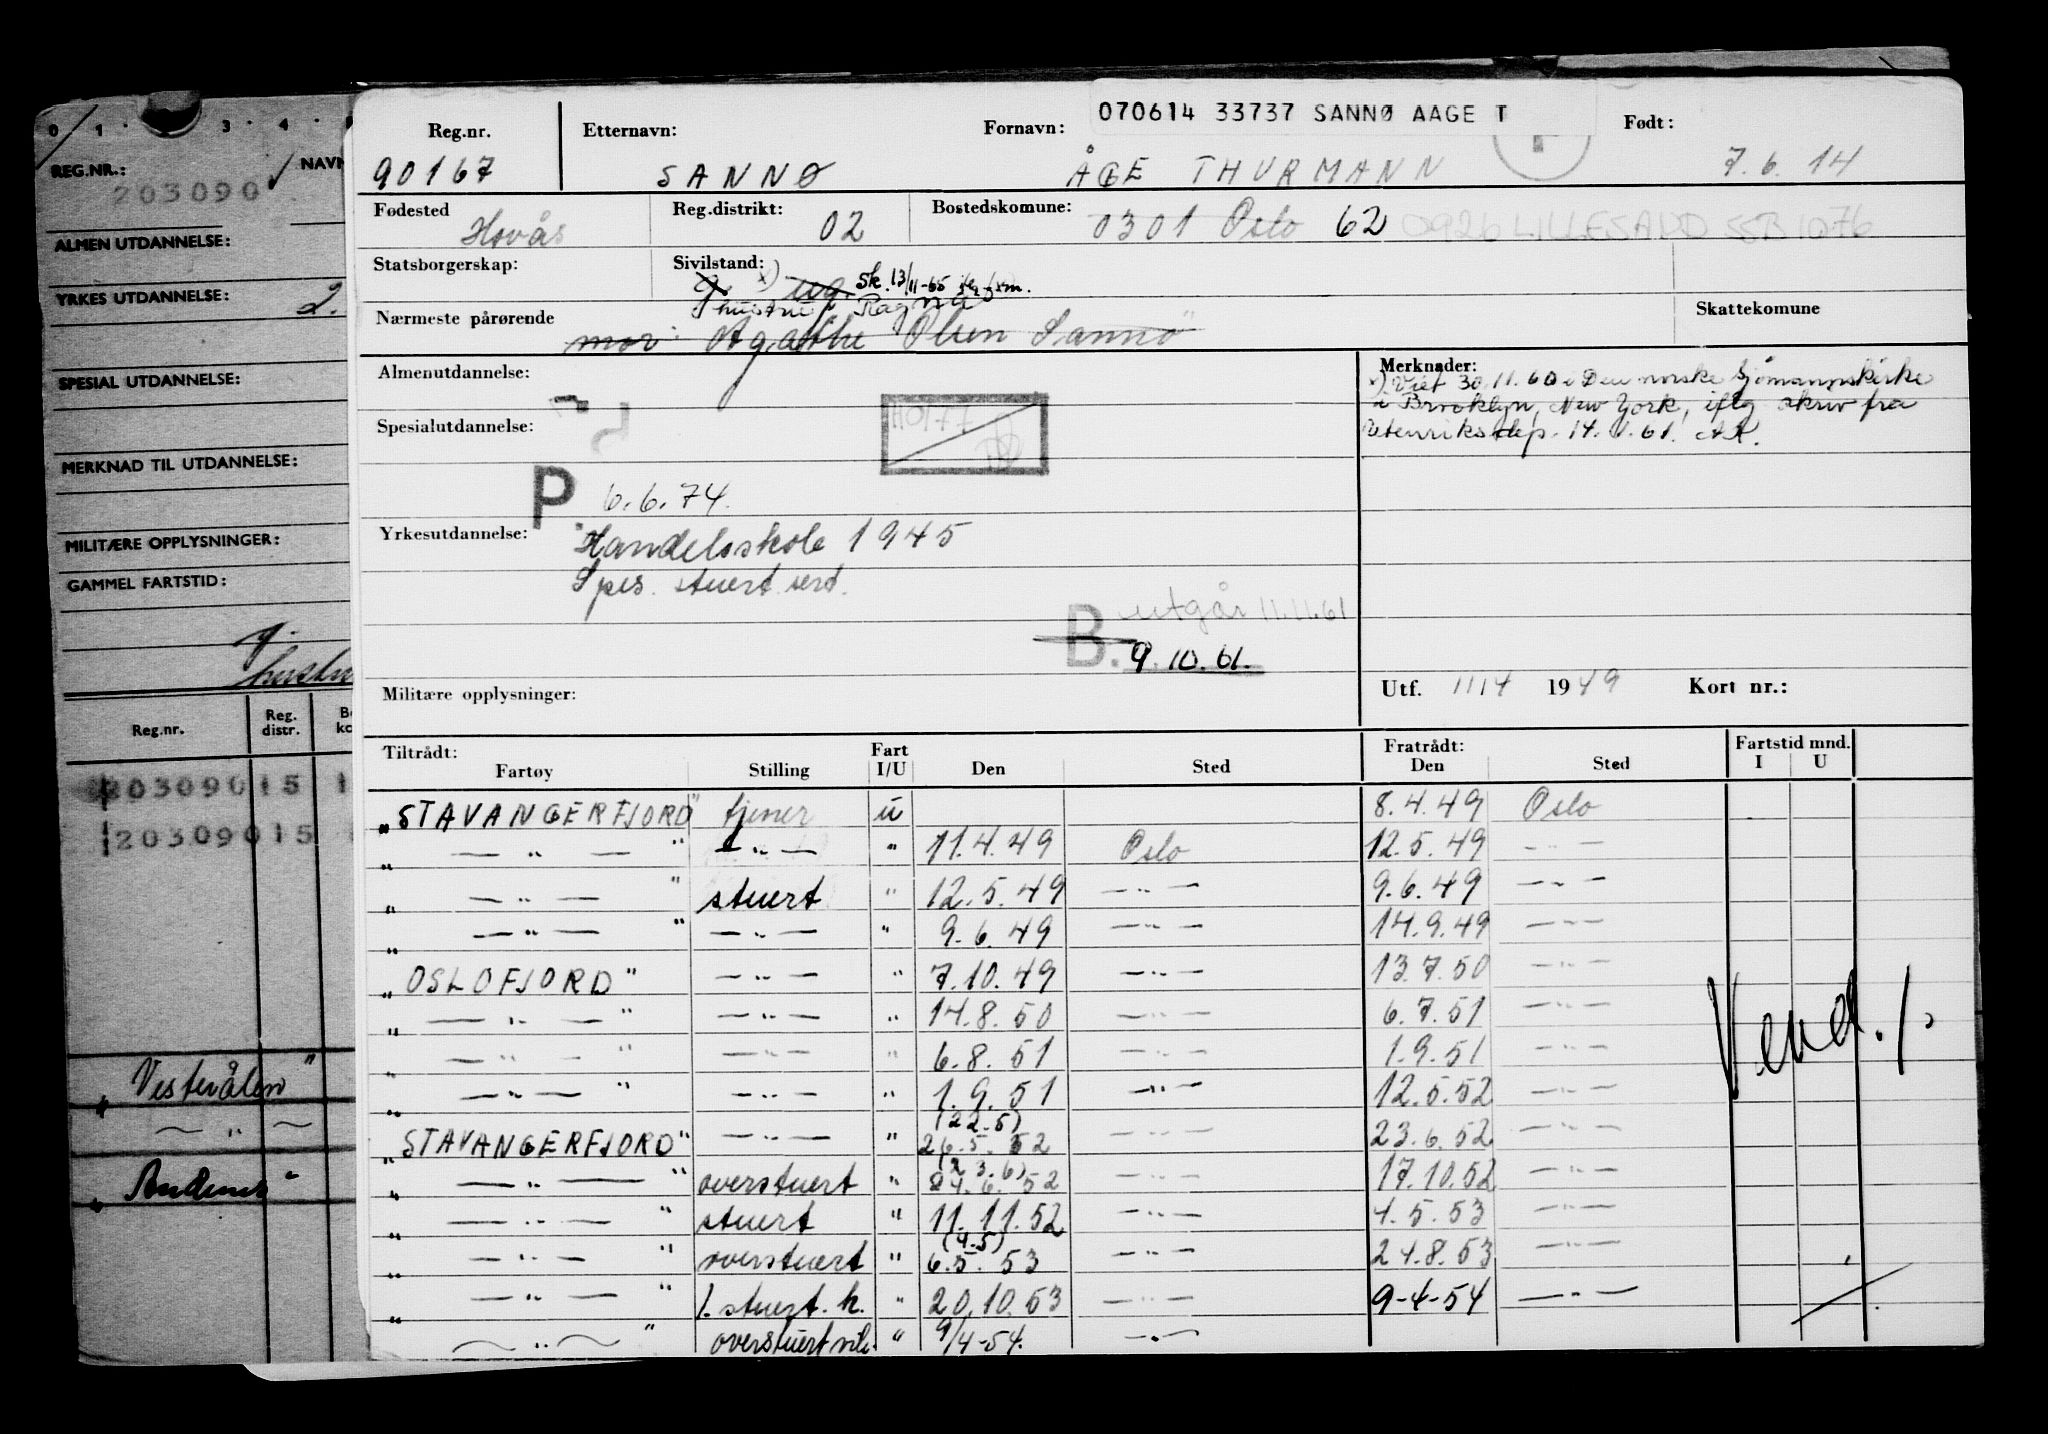 0 1 · 3 4
REG.NR.: 203090 NAVN
ALMEN UTDANNELSE:
YRKES UTDANNELSE: 2.
SPESIAL UTDANNELSE:
MERKNAD TIL UTDANNELSE:
MILITÆRE OPPLYSNINGER:
GAMMEL FARTSTID:
g.
hustru
Reg.nr. Reg. distr.
203090 15 1
203090 15
"Vesterålen"
— " —
"Andenes"
070614 33737 SANNØ AAGE T
Reg.nr. Etternavn: Fornavn: Født:
90167 SANNØ ÅGE THURMANN 7.6.14
Fødested Reg.distrikt: Bostedskomune:
Hovås 02 0301 Oslo 62 0926 LILLESAND SSB 1076
Statsborgerskap: Sivilstand: x) ug Sk. 13/11-65
hustru Ragna
Nærmeste pårørende Skattekomune
mor: Agathe Olsen Sannø
Almenutdannelse: Merknader:
x) Viet 30.11.60 i Den norske Sjømannskirke
i Brooklyn, New York, iflg skriv fra
Utenriksdep. 14.1.61. AK.
Spesialutdannelse:
P. 6.6.74.
Yrkesutdannelse: Handelsskole 1945
Spes. stuert sert.
B. utgår 11.11.61
9.10.61.
Militære opplysninger: Utf. 11/4 1949 Kort nr.:
Tiltrådt: Fart Fratrådt: Fartstid mnd.
Fartøy Stilling I/U Den Sted Den Sted I U
"STAVANGERFJORD" tjener u 8.4.49 Oslo
— " — " — " — " 11.4.49 Oslo 12.5.49 — " —
" — " — " stuert " 12.5.49 — " — 9.6.49 — " —
" — " — " — " — " 9.6.49 — " — 14.9.49 — " —
"OSLOFJORD" — " — " 7.10.49 — " — 13.7.50 — " —
" — " — " — " — " 14.8.50 — " — 6.7.51 — " —
" — " — " — " — " 6.8.51 — " — 1.9.51 — " —
" — " — " — " — " 1.9.51 — " — 12.5.52 — " —
(22.5)
"STAVANGERFJORD" — " — " 26.5.52 — " — 23.6.52 — " —
(23.6)
" — " — " overstuert " 24.6.52 — " — 17.10.52 — " —
" — " — " stuert " 11.11.52 — " — 4.5.53 — " —
(4.5)
" — " — " overstuert " 6.5.53 — " — 24.8.53 — " —
" — " — " 1. stuert. k. " 20.10.53 — " — 9-4-54 — " —
— " — " overstuert vik. " 9/4-54. — " —
Vend.!